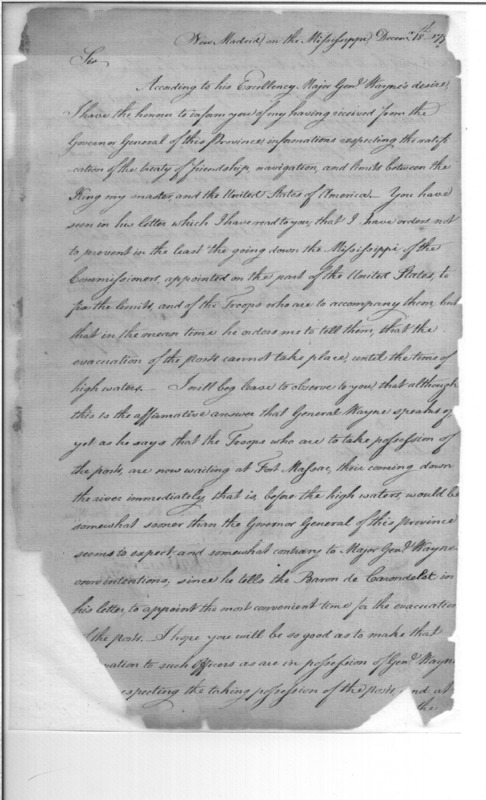 New Madrid on the Mississippi Decem.r 18th 179
Sir
According to his Excellency Major Gen.l Wayne's desire,
I have the honour to inform you of my having received from the
Governor General of this Province, informations respecting the ratifi
cation of the treaty of friendship, navigation, and limits between the
King my master, and the United States of America. — You have
seen in his letter which I have read to you, that I have orders not
to prevent in the least the going down the Mississippi of the
Commissioners, appointed on the part of the United States, to
fix the limits, and of the Troops who are to accompany them, but
that in the mean time he orders me to tell them, that the
evacuation of the Posts cannot take place, until the time of
high waters. — I will beg leave to observe to you, that although
this is the affirmative answer that General Wayne speaks of
yet as he says that the Troops who are to take possession of
the posts, are now waiting at Fort Massac, their coming down
the river immediately, that is, before the high waters, would be
somewhat sooner than the Governor General of this province
seems to expect, and somewhat contrary to Major Gen.l Wayne
own intentions, since he tells the Baron de Carondelet in
his letter, to appoint the most convenient time for the evacuation
the posts. I hope you will be so good as to make that
vation to such Officers as are in possession of Gen.l Wayne
especting the taking possession of the posts, and at
the